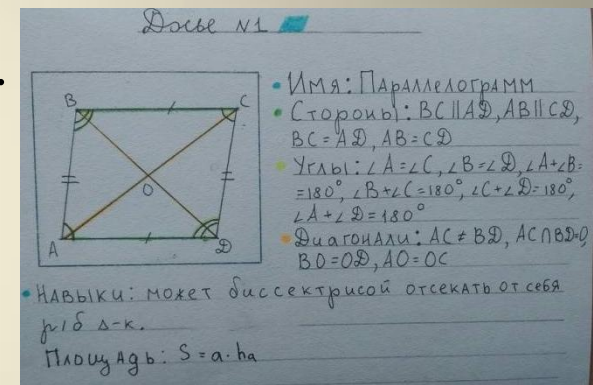 Досье №1
B
C
O
A
D
• Имя: Параллелограмм
• Стороны: BC||AD, AB||CD,
BC=AD, AB=CD
• Углы: ∠A=∠C, ∠B=∠D, ∠A+∠B=
=180°, ∠B+∠C=180°, ∠C+∠D=180°,
∠A+∠D=180°
• Диагонали: AC≠BD, AC∩BD=O,
BO=OD, AO=OC
• Навыки: может биссектрисой отсекать от себя
р/б Δ-к.
Площадь: S=a·ha